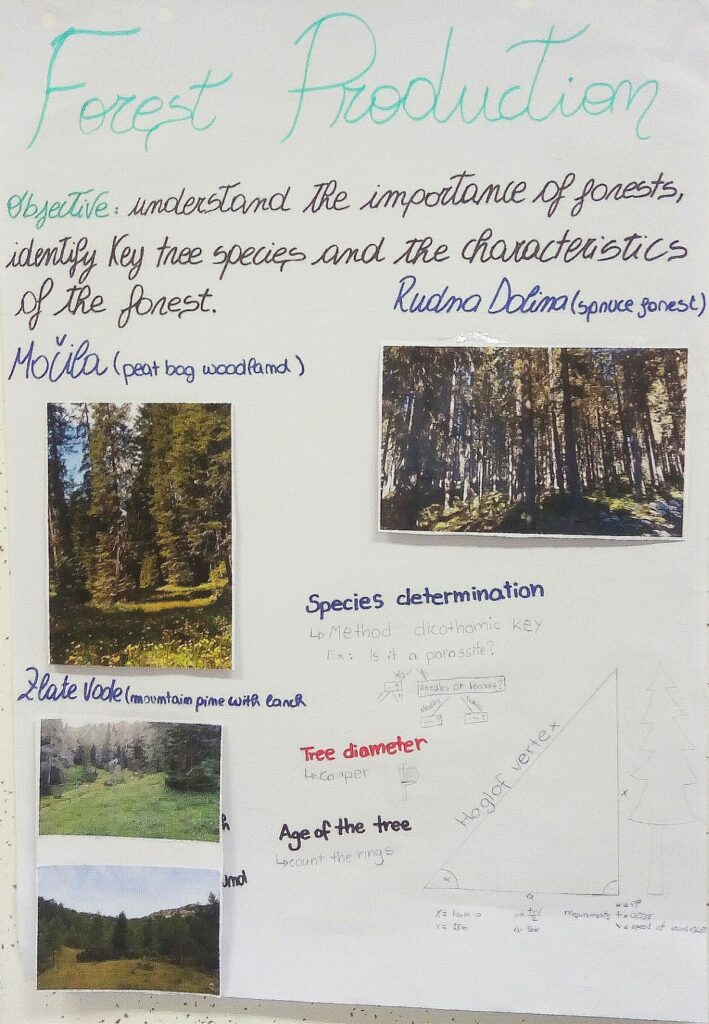 Forest Production
Objective: understand the importance of forests,
identify key tree species and the characteristics
of the forest.
Rudna Dolina (spruce forest)
Močila (peat bog woodland)
Species determination
↳ Method dicothomic key
Ex: Is it a parassite?
Needles or leaves?
Zlate Vode (mountain pine with larch
Tree diameter
↳ caliper
Haglof vertex
x
Age of the tree
↳ count the rings
α
a
x = tan α
measurements
v = speed of sound